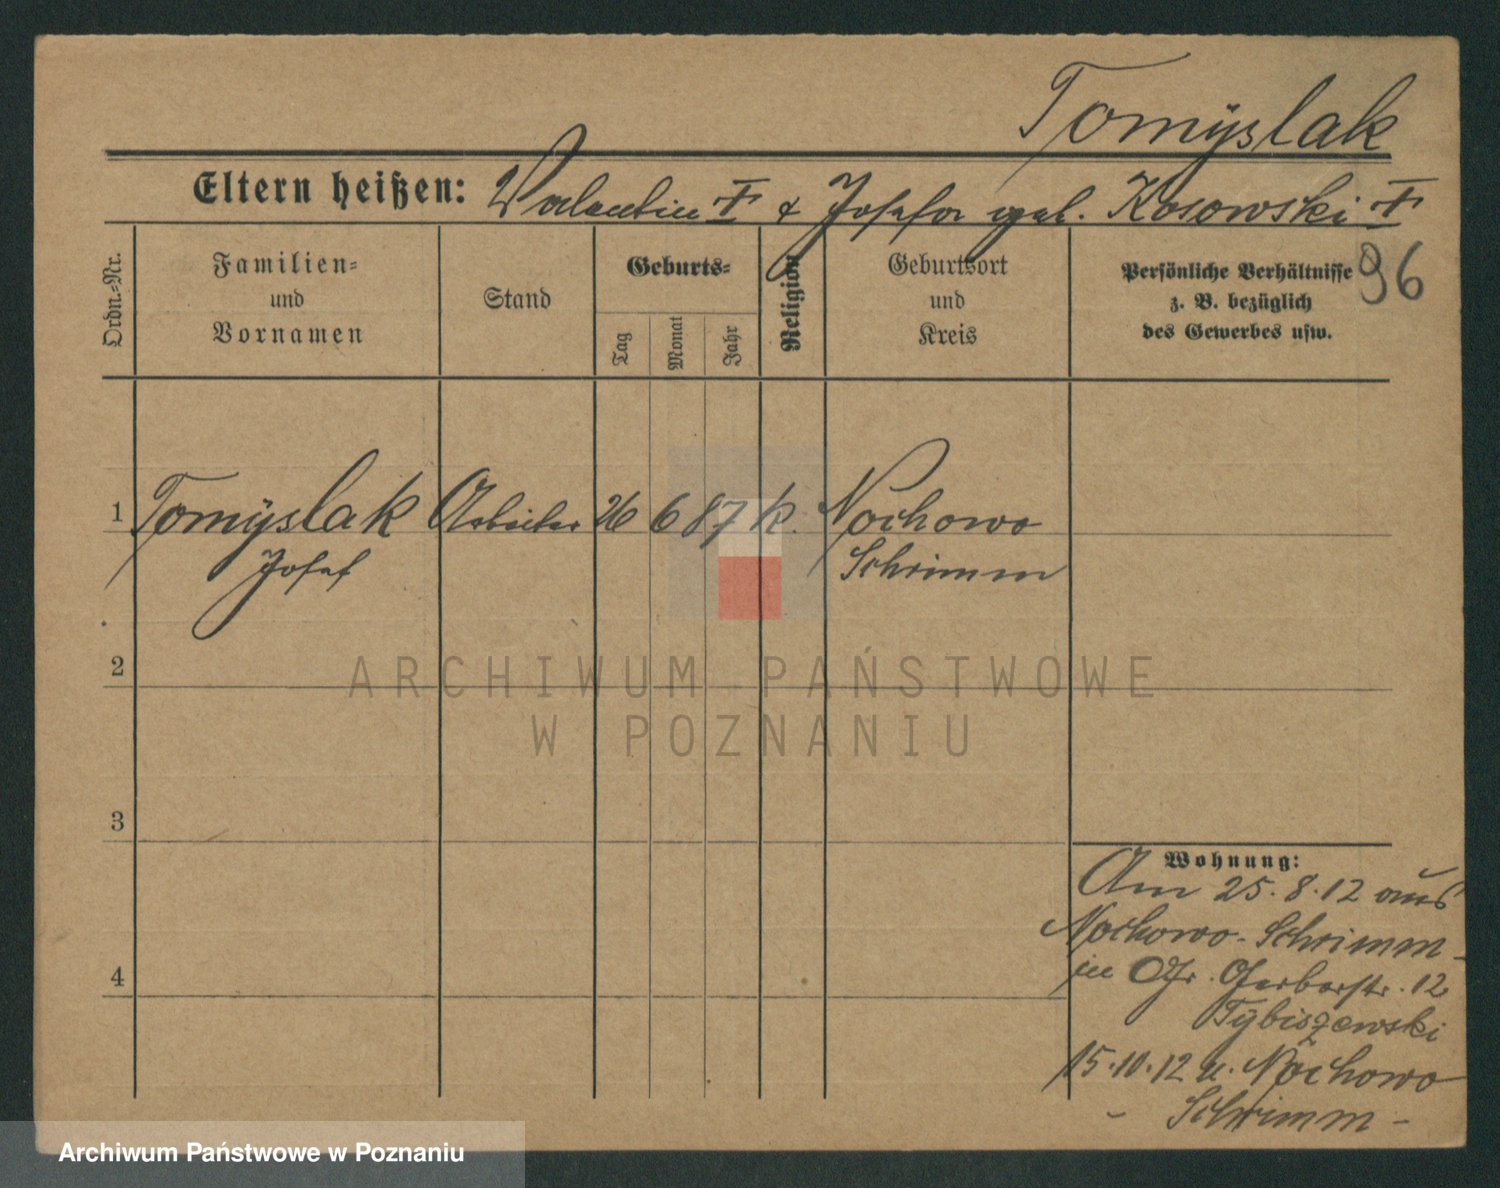 Tomÿslak
Eltern heißen: Valentin † & Josefa geb. Kosowski †
96
Ordn.-Nr.
Familien-
und
Vornamen
Stand
Geburts-
Tag
Monat
Jahr
Religion
Geburtsort
und
Kreis
Persönliche Verhältnisse
z. B. bezüglich
des Gewerbes usw.
1 Tomÿslak Arbeiter 26 6 87 k. Nochowo
Josef Schrimm
2
ARCHIWUM PAŃSTWOWE
W POZNANIU
3
Wohnung:
Am 25.8.12 aus
Nochowo-Schrimm-
in Gr. Gerberstr. 12
Tÿbiszewski
15.10.12 n. Nochowo
- Schrimm -
4
Archiwum Państwowe w Poznaniu